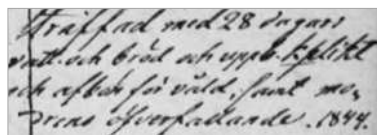 Straffad med 28 dagars
vatt. och bröd och uppb. kplikt
och afbön för våld, samt mo-
drens öfverfallande. 1844.